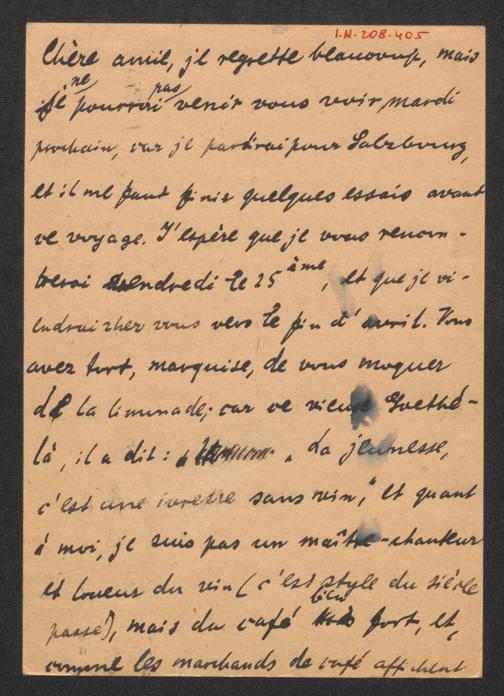 I.N. 208.405
Chère amie, je regrette beaucoup, mais
je ne pourrai pas venir vous voir mardi
prochain, car je partirai pour Salzbourg,
et il me faut finir quelques essais avant
ce voyage. J'espère que je vous rencon-
trerai vendredi le 25ème, et que je vi-
endrai chez vous vers le fin d'avril. Vous
avez tort, marquise, de vous moquer
de la limonade; car ce vieux Goethe-
là, il a dit: „La jeunesse,
c'est une ivresse sans vin," et quant
à moi, je suis pas un maître-chanteur
et loueur du vin (c'est style du siècle
passé), mais du café bien fort, et,
comme les marchands de café affichent